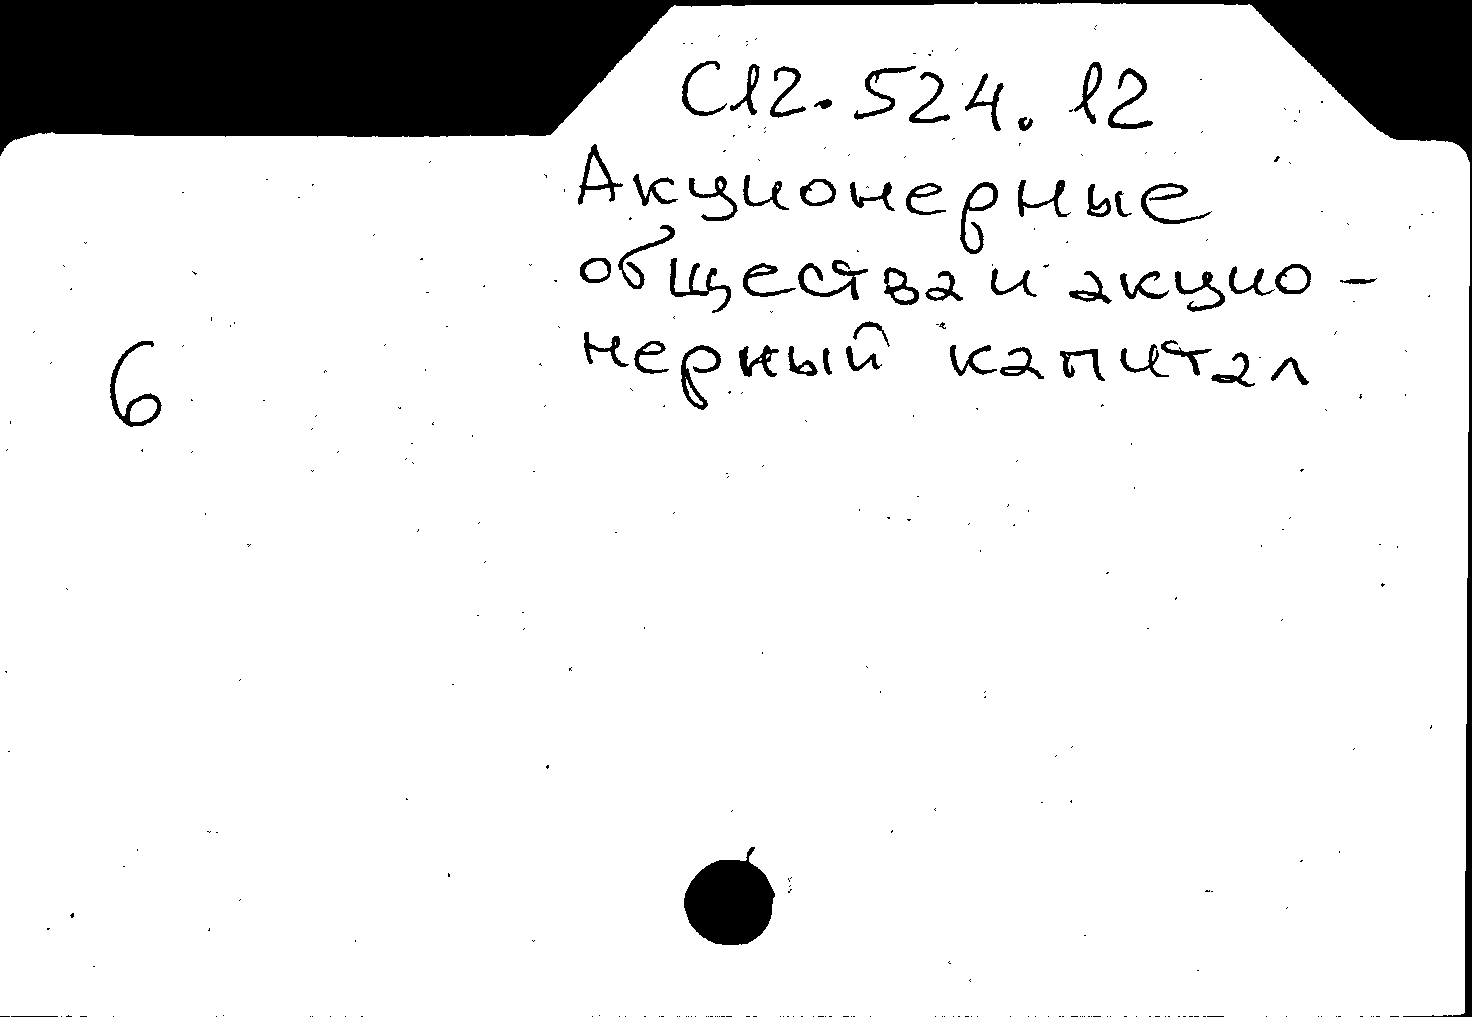 С12.524.12
Акционерные
общества и акцио-
нерный капитал
6